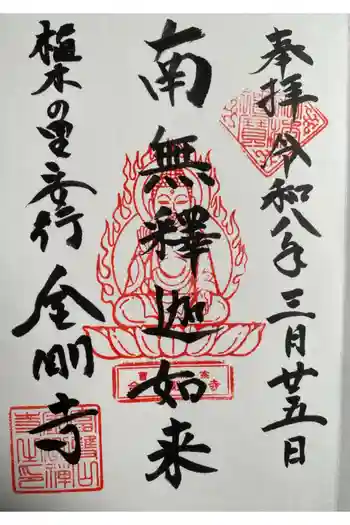 奉拝 令和八年 三月廿五日
南無釋迦如来
植木の里 安行 金剛寺